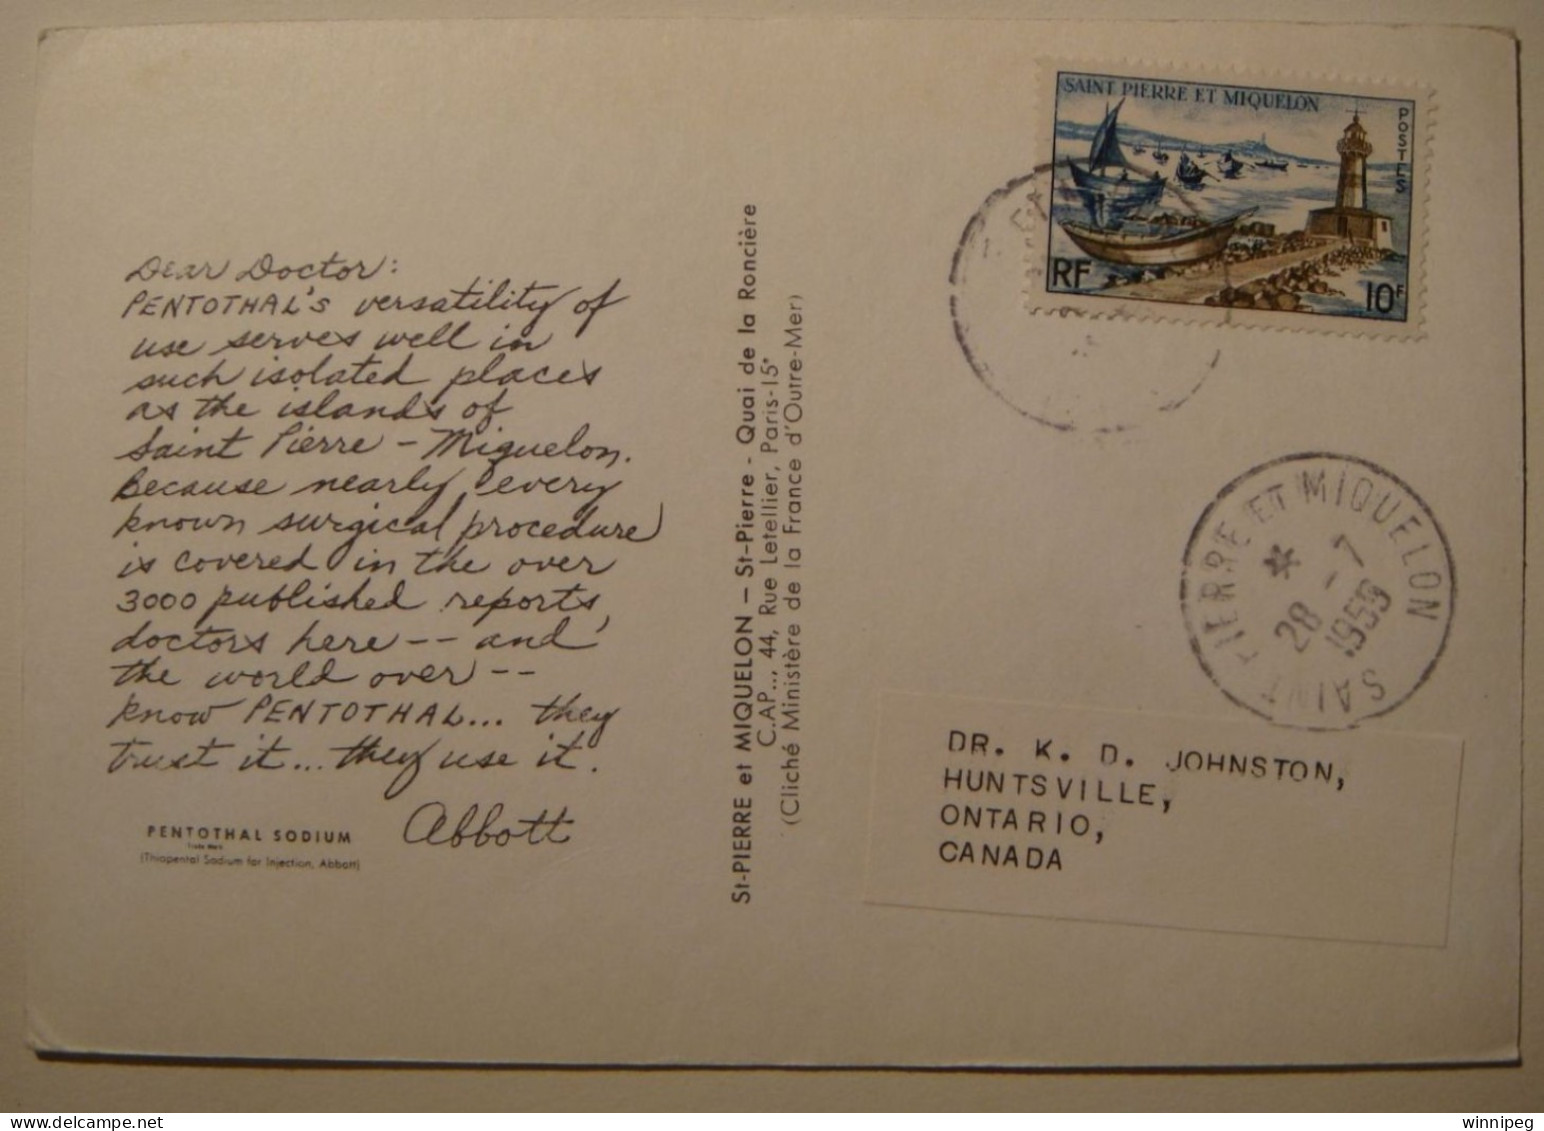 Dear Doctor:
PENTOTHAL'S versatility of
use serves well in
such isolated places
as the islands of
Saint Pierre - Miquelon.
Because nearly every
known surgical procedure
is covered in the over
3000 published reports,
doctors here -- and
the world over --
know PENTOTHAL... they
trust it... they use it.
Abbott
PENTOTHAL SODIUM
Trade Mark
(Thiopental Sodium for Injection, Abbott)
St-PIERRE et MIQUELON — St-Pierre - Quai de la Roncière
C.A.P.., 44, Rue Letellier, Paris-15e
(Cliché Ministère de la France d'Outre-Mer)
SAINT PIERRE ET MIQUELON
POSTES
RF
10F
SAINT PIERRE ET MIQUELON
* 28 -7
1959
DR. K. D. JOHNSTON,
HUNTSVILLE,
ONTARIO,
CANADA
winnipeg